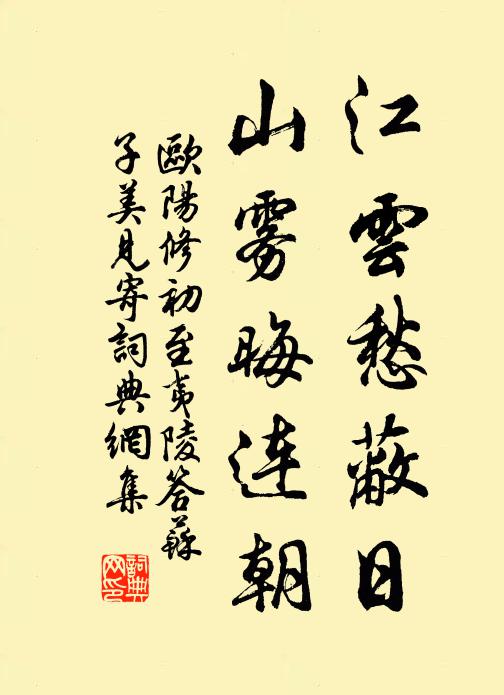 江雲愁蔽日
山雾晦连朝
歐陽修初至夷陵答蘇
子美見寄詞典網集
詞典
网印